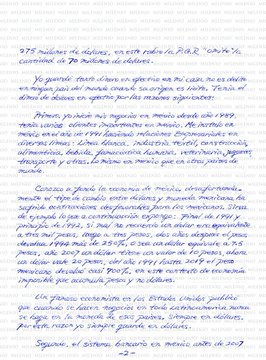 275 millones de dolares, en este robo la P.G.R. "omite" la
cantidad de 70 millones de dolares.
Yo guarde tanto dinero en efectivo en mi casa, no es delito
en ningun pais del mundo cuando su origen es licito. Tenia el
dinero de dolares en efectivo por las razones siguientes:
Primero, yo inicié mis negocios en mexico desde año 1989,
tenia varios clientes importantes en mexico. Me instalé en
mexico en el año de 1991 haciendo relaciones Empresariales en
diversas lineas: Linea blanca, industria textil, construcción,
alimenticia, bebida, farmacéutica humano, veterinaria, juguetes,
transporte y otras. Lo mismo en mexico que en otros paises de
mundo.
Conozco a fondo la economia de mexico, desafortunada-
mente el tipo de cambio entre dolares y moneda mexicana, ha
sufrido continuaciones desfavorables para los mexicanos. Sirva
de ejemplo lo que a continuación expongo: Final de 1991 y
principio de 1992, si mal no recuerdo un dolar era equivalente
a tres mil pesos, luego a tres pesos, dos años despues el peso
devaluo 1994 más de 250%, o sea un dolar equivale a 7.5
pesos, año 2007 un dolar tiene un valor de 10 pesos, ahora
un dolar vale 20 pesos, del año 1991 hasta 2019 el peso
mexicano devaluó casi 700%, en este contexto de economia
imposible que acumula pesos y no dolares.
Un famoso economista en los Estados Unidos publicó
que cuando se hacen negocios en toda Latinoamerica nunca
se haga en la moneda de esos paises, siempre en dolares,
por esta razón yo siempre guarde en dolares.
Segundo, el sistema bancario en mexico antes de 2007
-2-